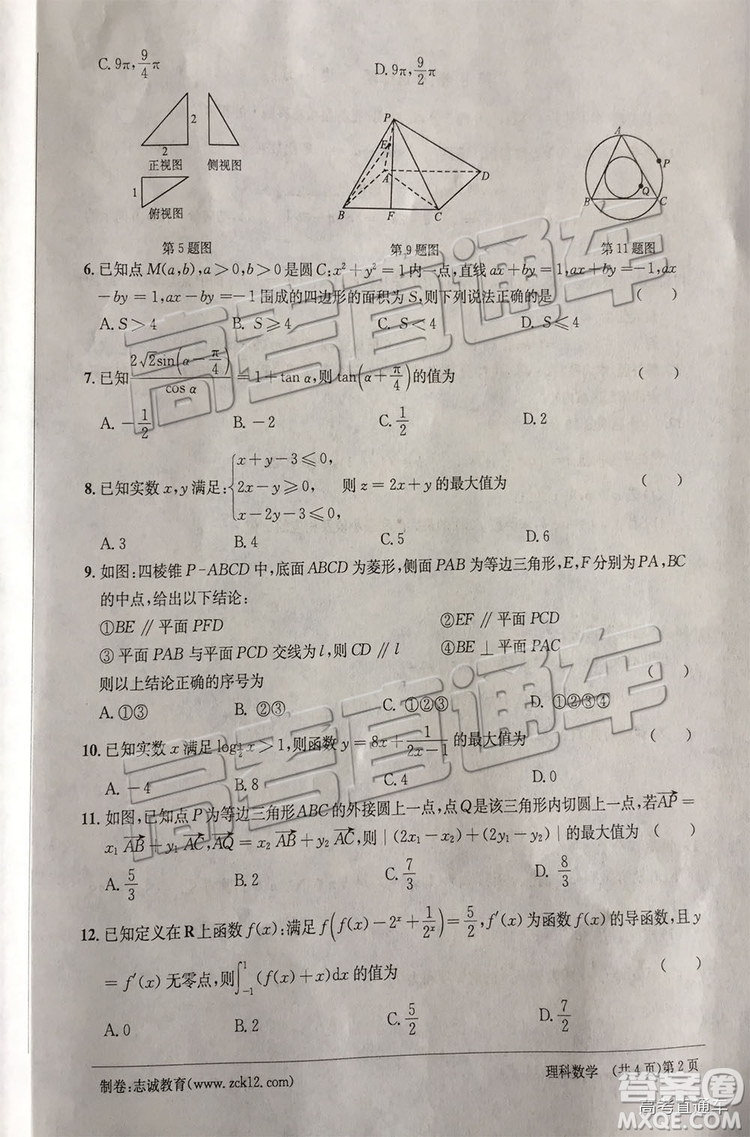 C. 9π, 9/4 π    D. 9π, 9/2 π
2
2
正视图 侧视图
1
俯视图
第5题图
P
E
A
D
B
F
C
第9题图
A
P
Q
B
C
第11题图
6. 已知点M(a,b),a>0,b>0是圆C:x²+y²=1内一点,直线ax+by=1,ax+by=-1,ax
-by=1,ax-by=-1围成的四边形的面积为S,则下列说法正确的是 ( )
A. S>4    B. S≥4    C. S<4    D. S≤4
7. 已知 2√2sin(α-π/4)/cosα =1+tanα,则tan(α+π/4)的值为 ( )
A. -1/2    B. -2    C. 1/2    D. 2
8. 已知实数x,y满足:{x+y-3≤0, 2x-y≥0, x-2y-3≤0, 则z=2x+y的最大值为 ( )
A. 3    B. 4    C. 5    D. 6
9. 如图:四棱锥P-ABCD中,底面ABCD为菱形,侧面PAB为等边三角形,E,F分别为PA,BC
的中点,给出以下结论:
①BE∥平面PFD    ②EF∥平面PCD
③平面PAB与平面PCD交线为l,则CD∥l    ④BE⊥平面PAC
则以上结论正确的序号为 ( )
A. ①③    B. ②③    C. ①②③    D. ①②③④
10. 已知实数x满足log_{1/2}x>1,则函数y=8x+1/(2x-1)的最大值为 ( )
A. -4    B. 8    C. 4    D. 0
11. 如图,已知点P为等边三角形ABC的外接圆上一点,点Q是该三角形内切圆上一点,若AP⃗=
x₁AB⃗+y₁AC⃗,AQ⃗=x₂AB⃗+y₂AC⃗,则|(2x₁-x₂)+(2y₁-y₂)|的最大值为 ( )
A. 5/3    B. 2    C. 7/3    D. 8/3
12. 已知定义在R上函数f(x):满足f(f(x)-2ˣ+1/2ˣ)=5/2,f′(x)为函数f(x)的导函数,且y
=f′(x)无零点,则∫₋₁¹(f(x)+x)dx的值为 ( )
A. 0    B. 2    C. 5/2    D. 7/2
制卷:志诚教育(www.zck12.com)    理科数学 (共4页)第2页
高考直通车
答案圈
高考直通车
MXQE.COM